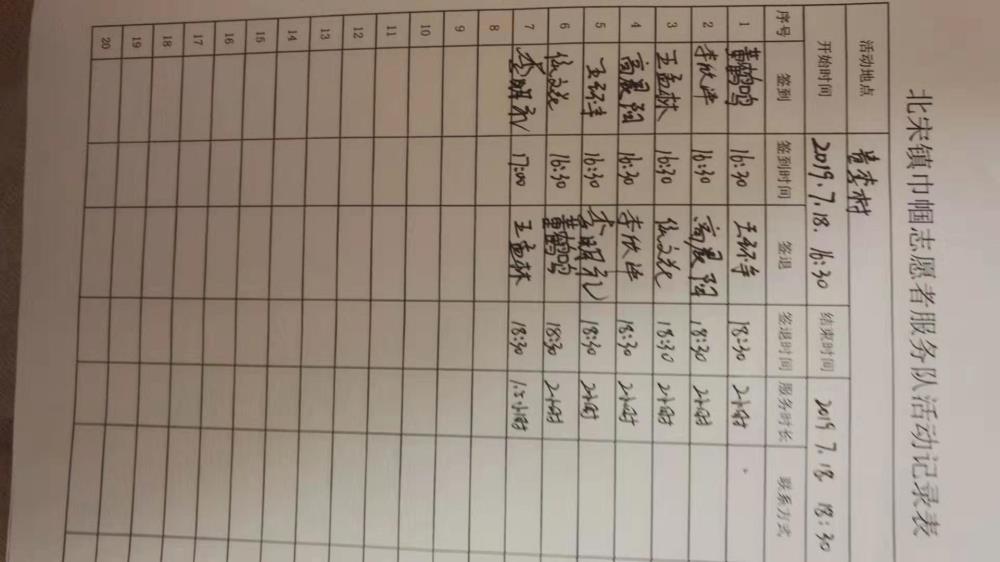 北宋镇巾帼志愿者服务队活动记录表
活动地点 普李村
开始时间 2019.7.18. 16:30 结束时间 2019 7.18 18:30
序号 签到 签到时间 签退 签退时间 服务时长 联系方式
1 黄鹤鸣 16:30 18:30 2小时
2 李欣泽 16:30 高晨阳 18:30 2小时
3 王孟林 16:30 伍文花 18:30 2小时
4 高晨阳 16:30 李欣泽 18:30 2小时
5 16:30 李明礼 18:30 2小时
6 伍文花 16:30 黄鹤鸣 18:30 2小时
7 李明礼 17:00 王孟林 18:30 1.5小时
8
9
10
11
12
13
14
15
16
17
18
19
20